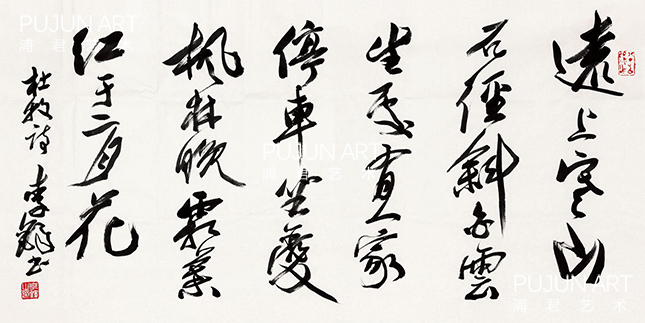 遠上寒山
石徑斜白雲
生處有人家
停車坐愛
楓林晚霜葉
紅于二月花
杜牧詩 李书
PUJUN ART
浦君艺术
PUJUN ART
浦君艺术
PUJUN ART
浦君艺术